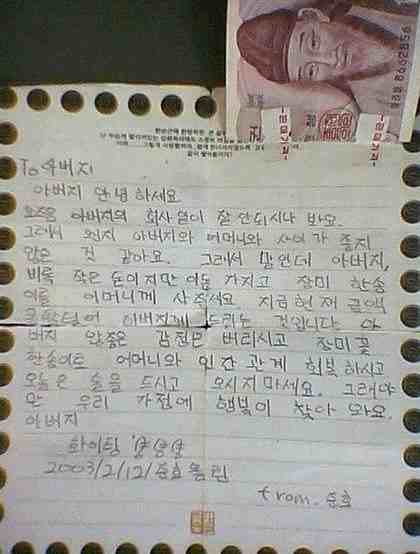 To 아버지
아버지 안녕하세요
요즘은 아버지의 회사일이 잘 안되시나 봐요.
그래서 왠지 아버지와 어머니와 사이가 좋지
않은 것 같아요. 그래서 말인데 아버지,
비록 작은 돈이지만 이돈 가지고 장미 한송
이를 어머니께 사주세요 지금현재 금액
아버지께 드리는 것입니다 아
버지 안좋은 감정은 버리시고 장미꽃
한송이로 어머니와 인간관계 회복하시고
오늘은 술을 드시고 오시지마세요. 그래야
만 우리 가정에 행복이 찾아 와요.
아버지
화이팅
2003/2/12/준호올림
from. 준호